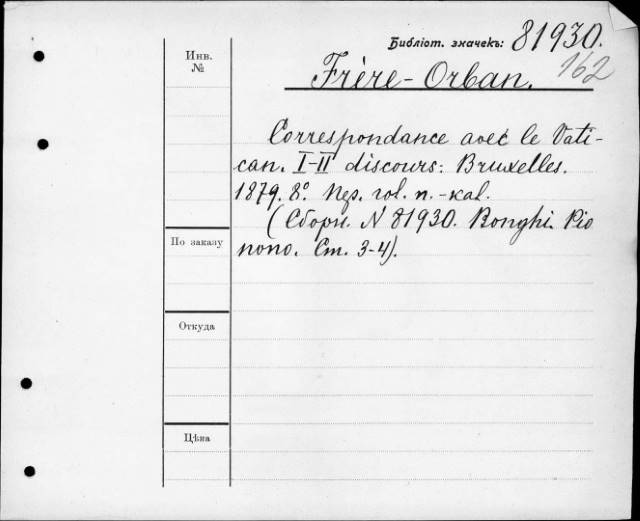 Библіот. значекъ: 81930.
162
Инв.
№
Frère-Orban.
Correspondance avec le Vati-
can. I-II discours: Bruxelles.
1879. 8°. Пер. vol. п.-кал.
(Сборн. N 81930. Bonghi. Pio
nono. Ст. 3-4).
По заказу
Откуда
Цѣна